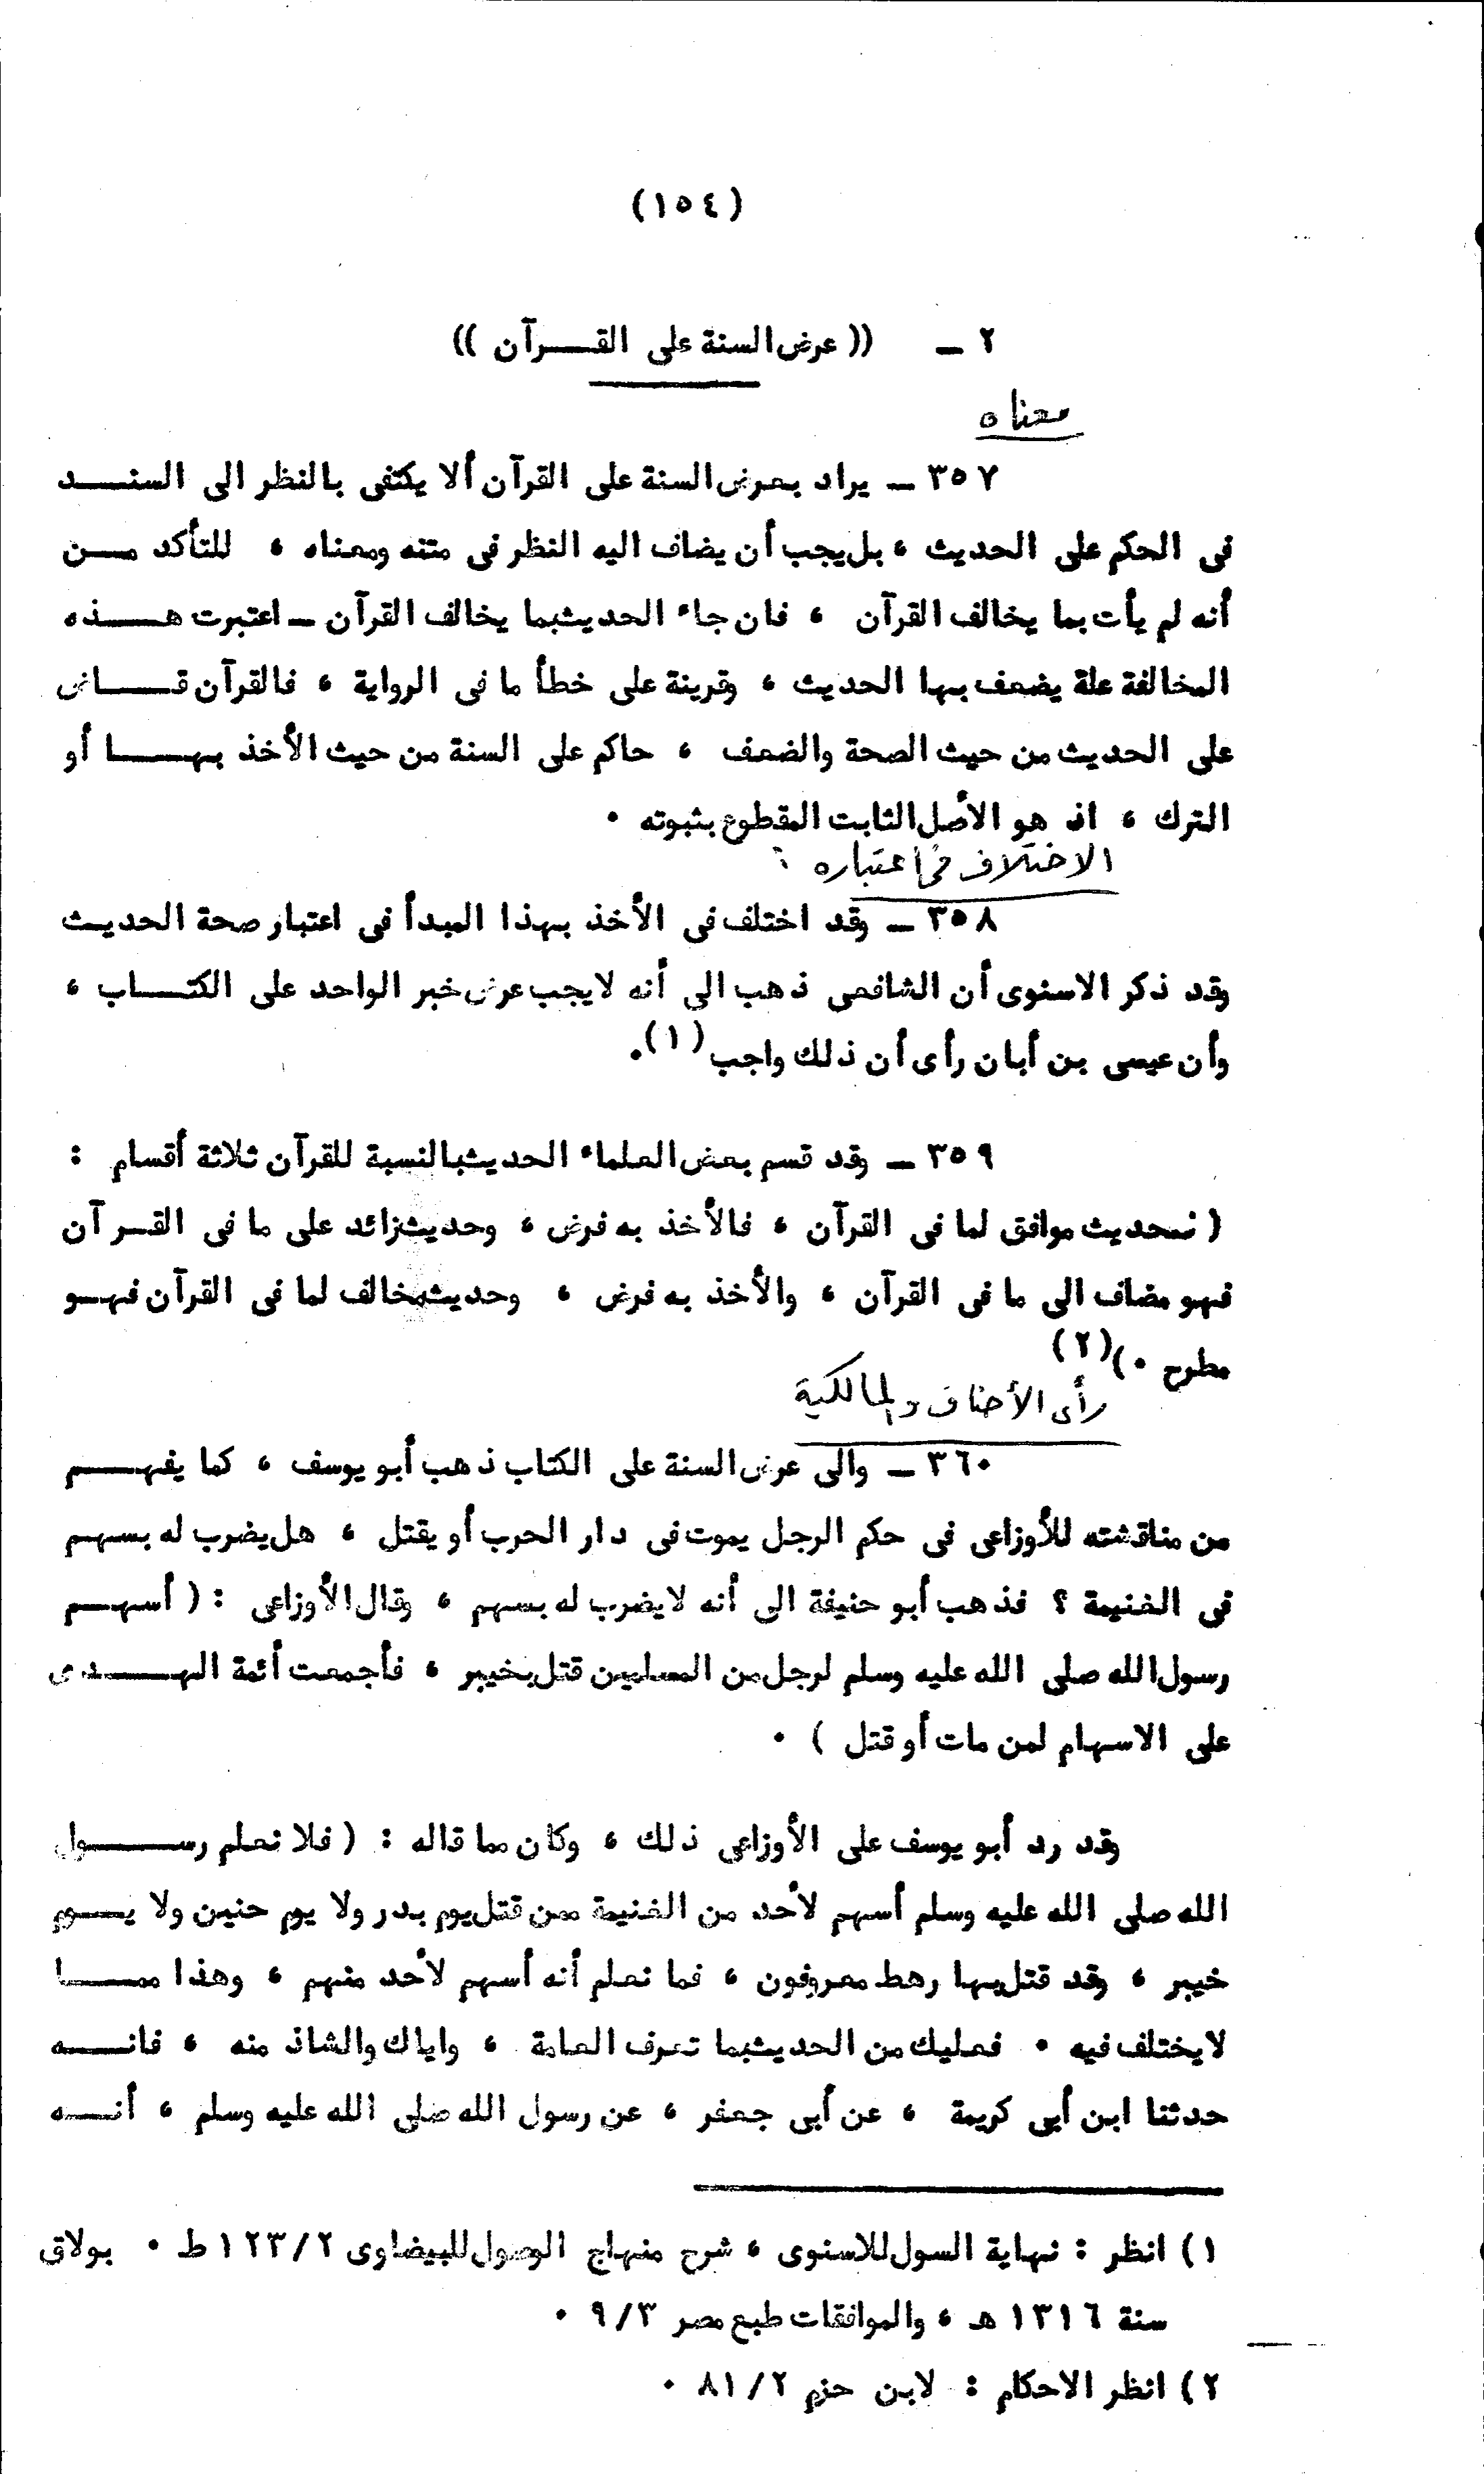 (١٥٤)
٢ ــ (( عرض السنة على القــرآن ))
معناه
٣٥٧ ــ يراد بعرض السنة على القرآن ألا يكتفى بالنظر الى السنــد
فى الحكم على الحديث ، بل يجب أن يضاف اليه النظر فى متنه ومعناه ، للتأكد مــن
أنه لم يأت بما يخالف القرآن ، فان جاء الحديث بما يخالف القرآن ــ اعتبرت هــذه
المخالفة علة يضعف بها الحديث ، وقرينة على خطأ ما فى الرواية ، فالقرآن قــاض
على الحديث من حيث الصحة والضعف ، حاكم على السنة من حيث الأخذ بهــا أو
الترك ، اذ هو الأصل الثابت المقطوع بثبوته .
الاختلاف فى اعتباره :
٣٥٨ ــ وقد اختلف فى الأخذ بهذا المبدأ فى اعتبار صحة الحديث
وقد ذكر الاسنوى أن الشافعى ذهب الى أنه لا يجب عرض خبر الواحد على الكتــاب ،
وأن عيسى بن أبان رأى أن ذلك واجب (١).
٣٥٩ ــ وقد قسم بعض العلماء الحديث بالنسبة للقرآن ثلاثة أقسام :
( فحديث موافق لما فى القرآن ، فالأخذ به فرض ، وحديث زائد على ما فى القــرآن
فهو مضاف الى ما فى القرآن ، والأخذ به فرض ، وحديث مخالف لما فى القرآن فهــو
مطرح .)(٢)
رأى الأحناف والمالكية
٣٦٠ ــ والى عرض السنة على الكتاب ذهب أبو يوسف ، كما يفهــم
من مناقشته للأوزاعى فى حكم الرجل يموت فى دار الحرب أو يقتل ، هل يضرب له بسهم
فى الغنيمة ؟ فذهب أبو حنيفة الى أنه لا يضرب له بسهم ، وقال الأوزاعى : ( أسهــم
رسول الله صلى الله عليه وسلم لرجل من المسلمين قتل بخيبر ، فأجمعت أئمة الهــدى
على الاسهام لمن مات أو قتل ) .
وقد رد أبو يوسف على الأوزاعى ذلك ، وكان مما قاله : ( فلا نعلم رســول
الله صلى الله عليه وسلم أسهم لأحد من الغنيمة ممن قتل يوم بدر ولا يوم حنين ولا يــوم
خيبر ، وقد قتل بها رهط معروفون ، فما نعلم أنه أسهم لأحد منهم ، وهذا ممــا
لا يختلف فيه . فعليك من الحديث بما تعرف العامة ، واياك والشاذ منه ، فانــه
حدثنا ابن أبى كريمة ، عن أبى جعفر ، عن رسول الله صلى الله عليه وسلم ، أنــه
١) انظر : نهاية السول للاسنوى ، شرح منهاج الوصول للبيضاوى ١٢٣/٢ ط . بولاق
سنة ١٣١٦ هـ ، والموافقات طبع مصر ٩/٣ .
٢) انظر الاحكام : لابن حزم ٨١/٢ .